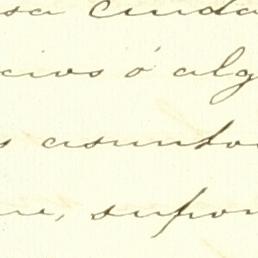 sa ciuda
cios ó alg
s asunto
re, supon